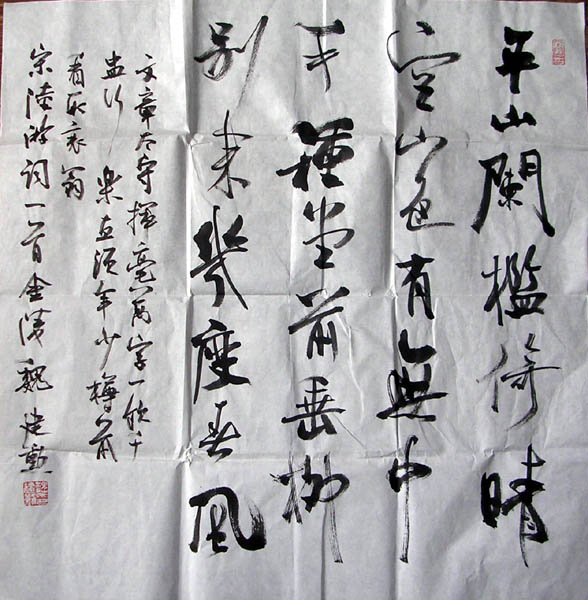 平山闌檻倚晴
空山色有無中
手種堂前垂柳
别来幾座春風
文章太守揮毫萬字一飲千
盅行樂直須年少樽前
看取衰翁
宋陸游詞一首金陵魏建勳